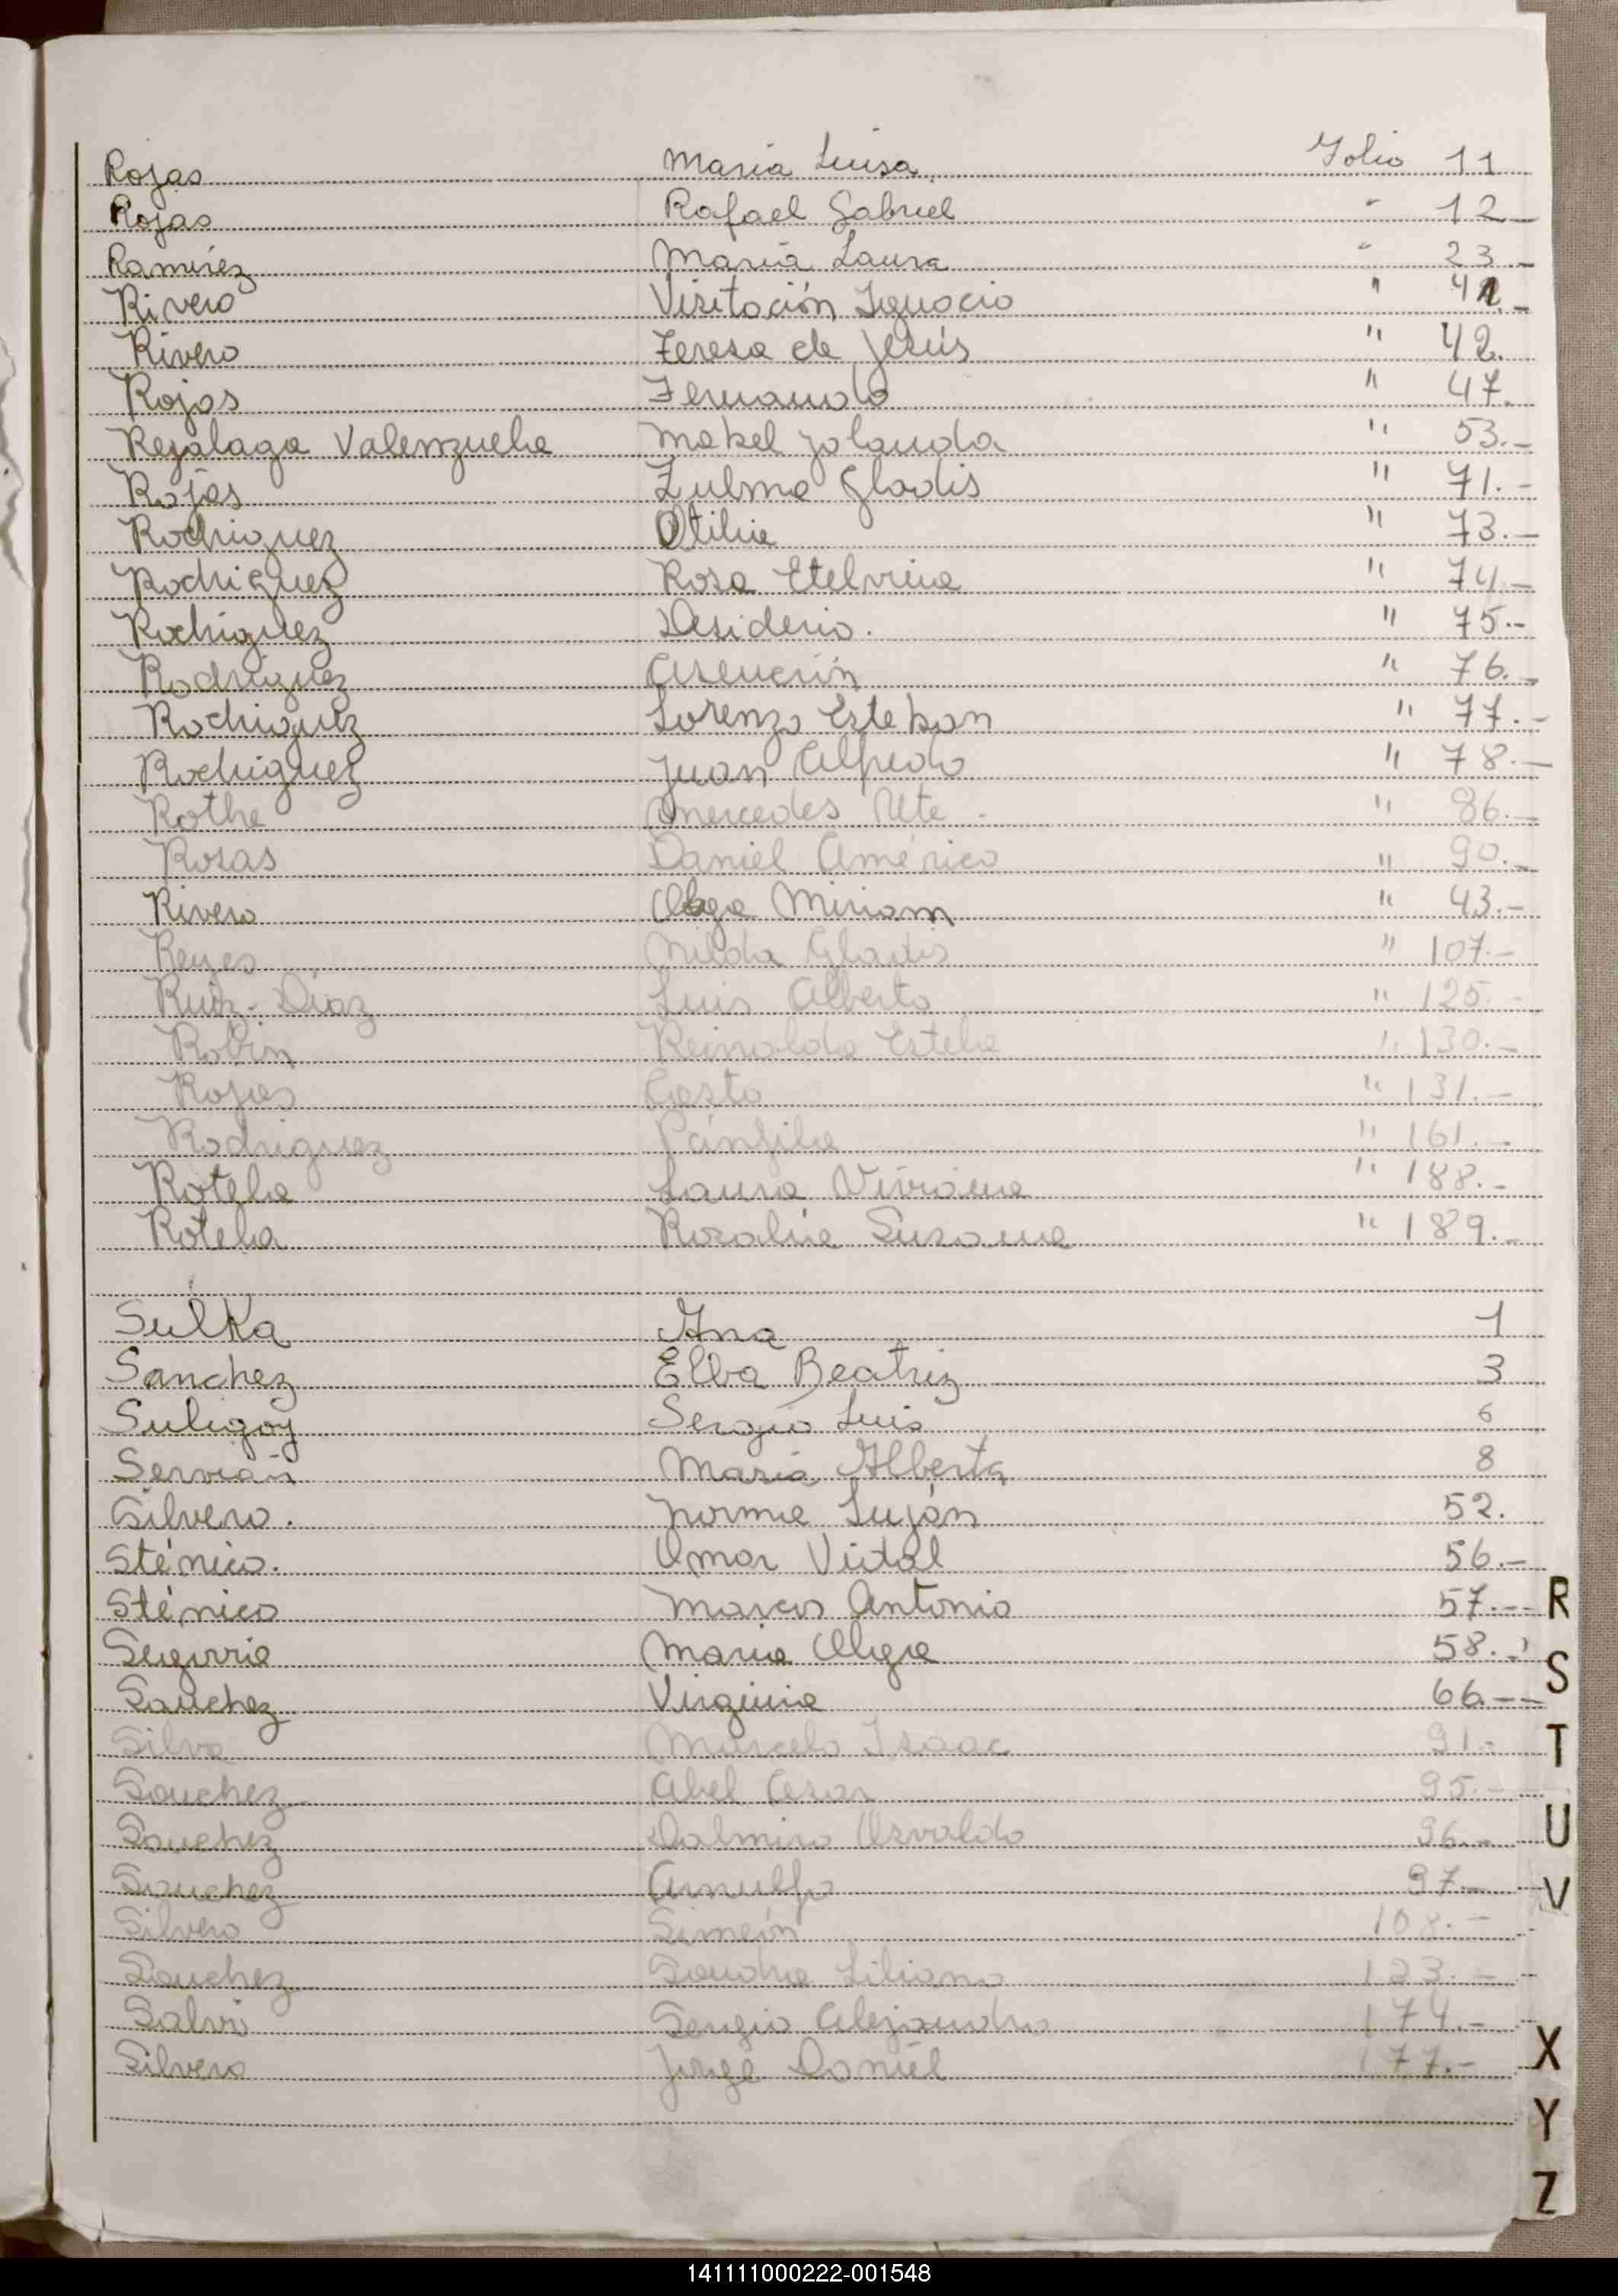 Rojas María Luisa Folio 11
Rojas Rafael Gabriel " 12.-
Ramírez María Laura " 23.-
Rivero Visitación Ignacio " 41.-
Rivero Teresa de Jesús " 42.
Rojas Fernando " 47.
Regalaga Valenzuela Mabel Yolanda " 53.-
Rojas Zulma Gladis " 71.-
Rodriguez Otilia " 73.-
Rodriguez Rosa Etelvina " 74.-
Rodriguez Desiderio. " 75.-
Rodriguez Asención " 76.-
Rodriguez Lorenzo Esteban " 77.-
Rodriguez Juan Alfredo " 78.-
Rothe Mercedes Ute - " 86.-
Rosas Daniel Américo " 90.-
Rivero Olga Miriam " 43.-
Reyes Nilda Gladis " 107.-
Ruiz-Díaz Luis Alberto " 125.-
Robin Reinalda Estela " 130.-
Rojas Casto " 131.-
Rodriguez Pánfila " 161.-
Rotela Laura Viviana " 188.-
Rotela Rosalía Susana " 189.-
Sulka Ana 1
Sanchez Elba Beatriz 3
Suligoy Sergio Luis 6
Servián María Alberta 8
Silvero. Norma Luján 52.
Sténico. Omar Vidal 56.-
Sténico Marcos Antonio 57.--
Segovia María Olga 58.-
Sanchez Virginia 66.--
Silva Marcelo Isaac 91.-
Sanchez Abel Cesar 95.-
Sanchez Dalmiro Osvaldo 96.-
Sanchez Arnulfo 97.-
Silvero Simeón 108.-
Sanchez Sandra Liliana 123.-
Salvi Sergio Alejandro 174.-
Silvero Jorge Daniel 177.-
R
S
T
U
V
X
Y
Z
141111000222-001548